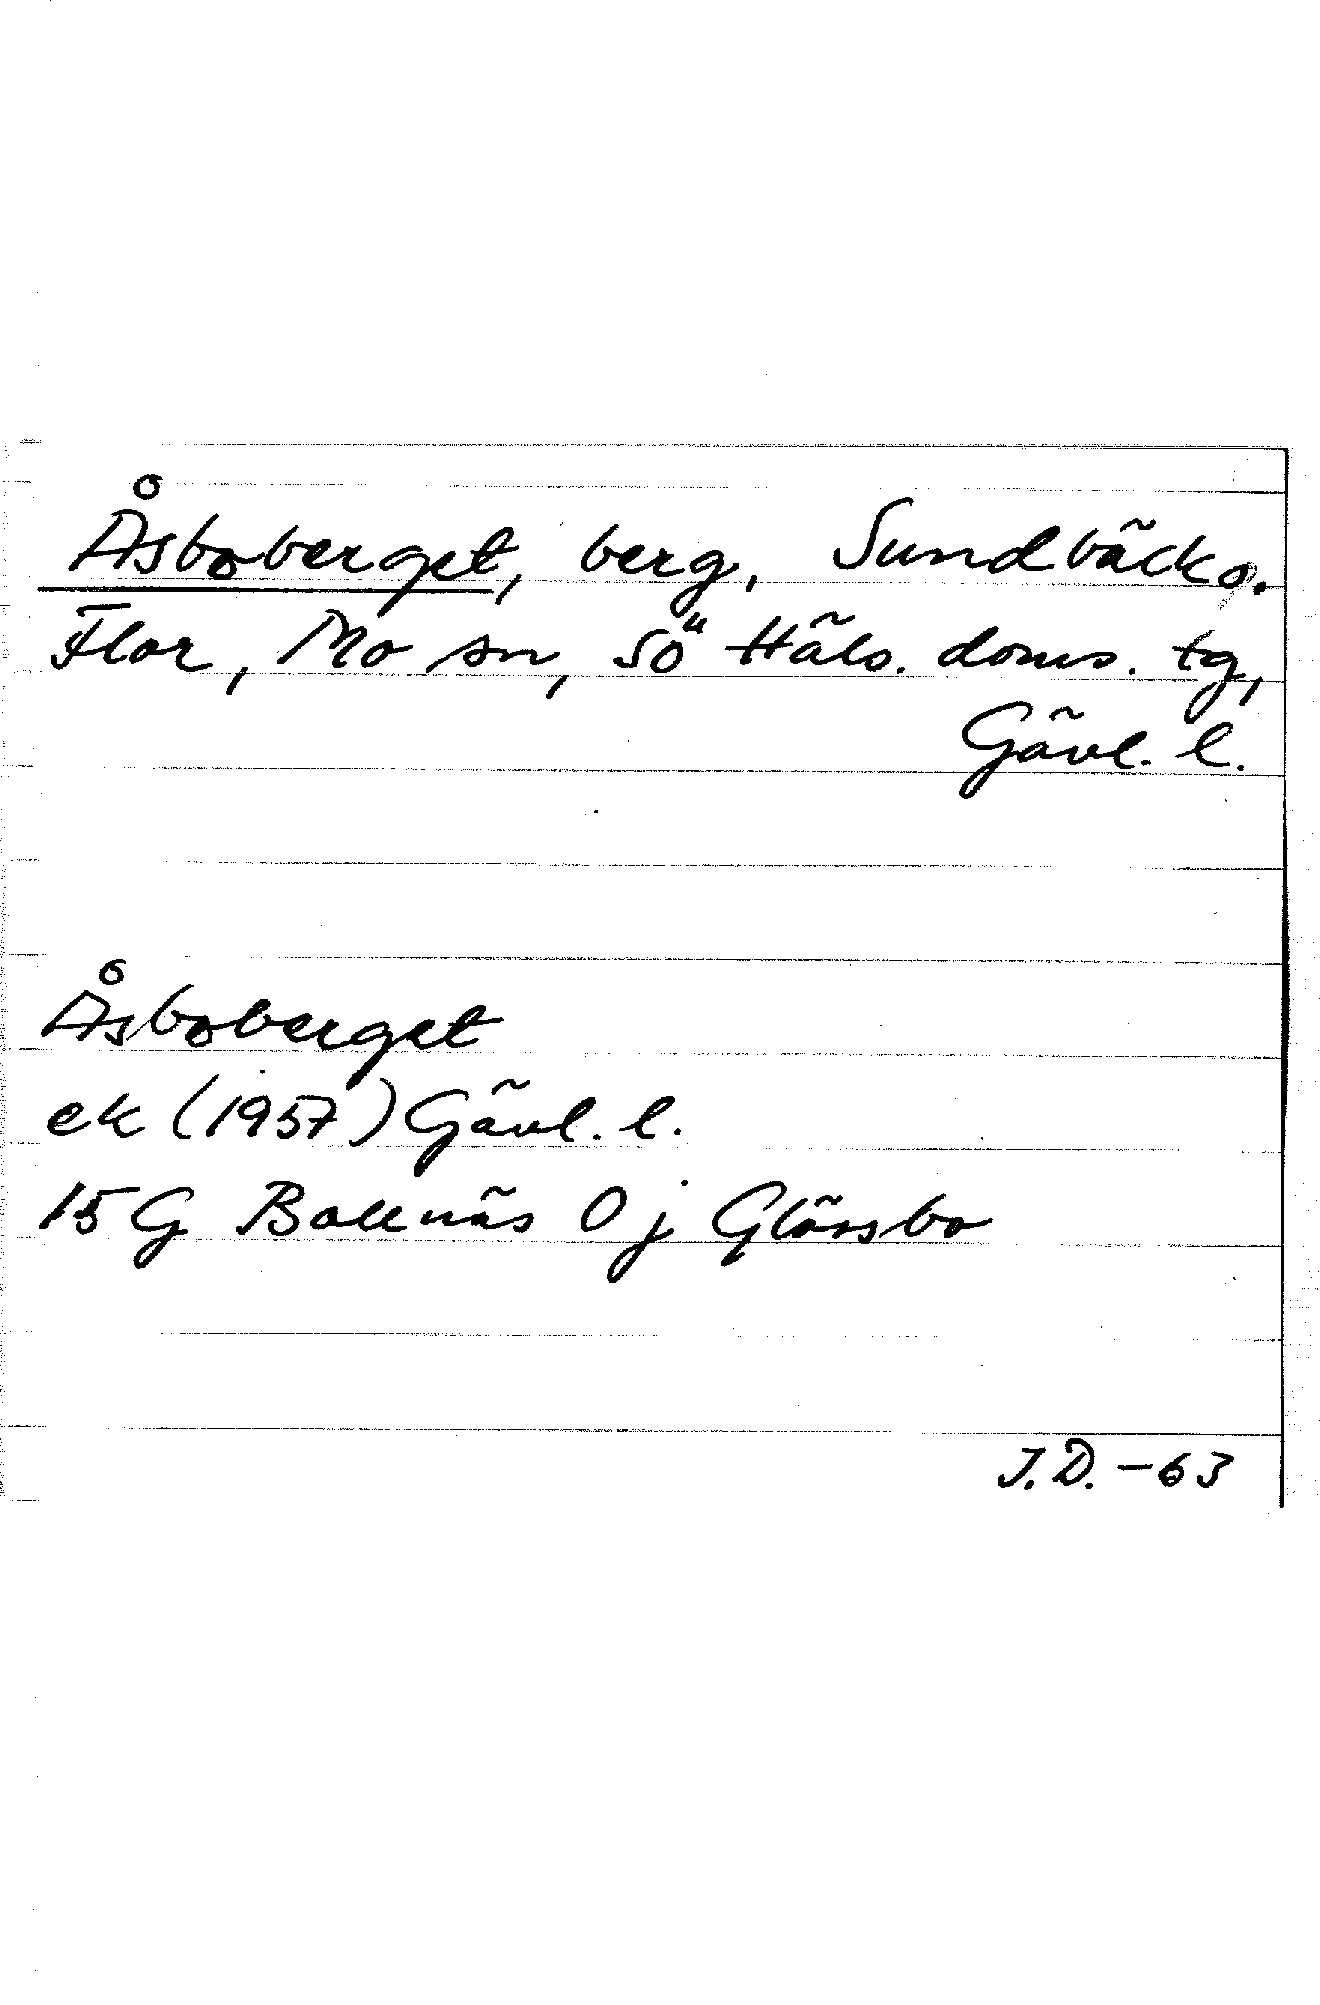 Åsboberget, berg, Sundbäck o.
Flor, Mo sn, Sö Häls. doms. tg,
Gävl. l.
Åsboberget
ek (1957) Gävl. l.
15G Bollnäs 0 j Glössbo
J.D. -63